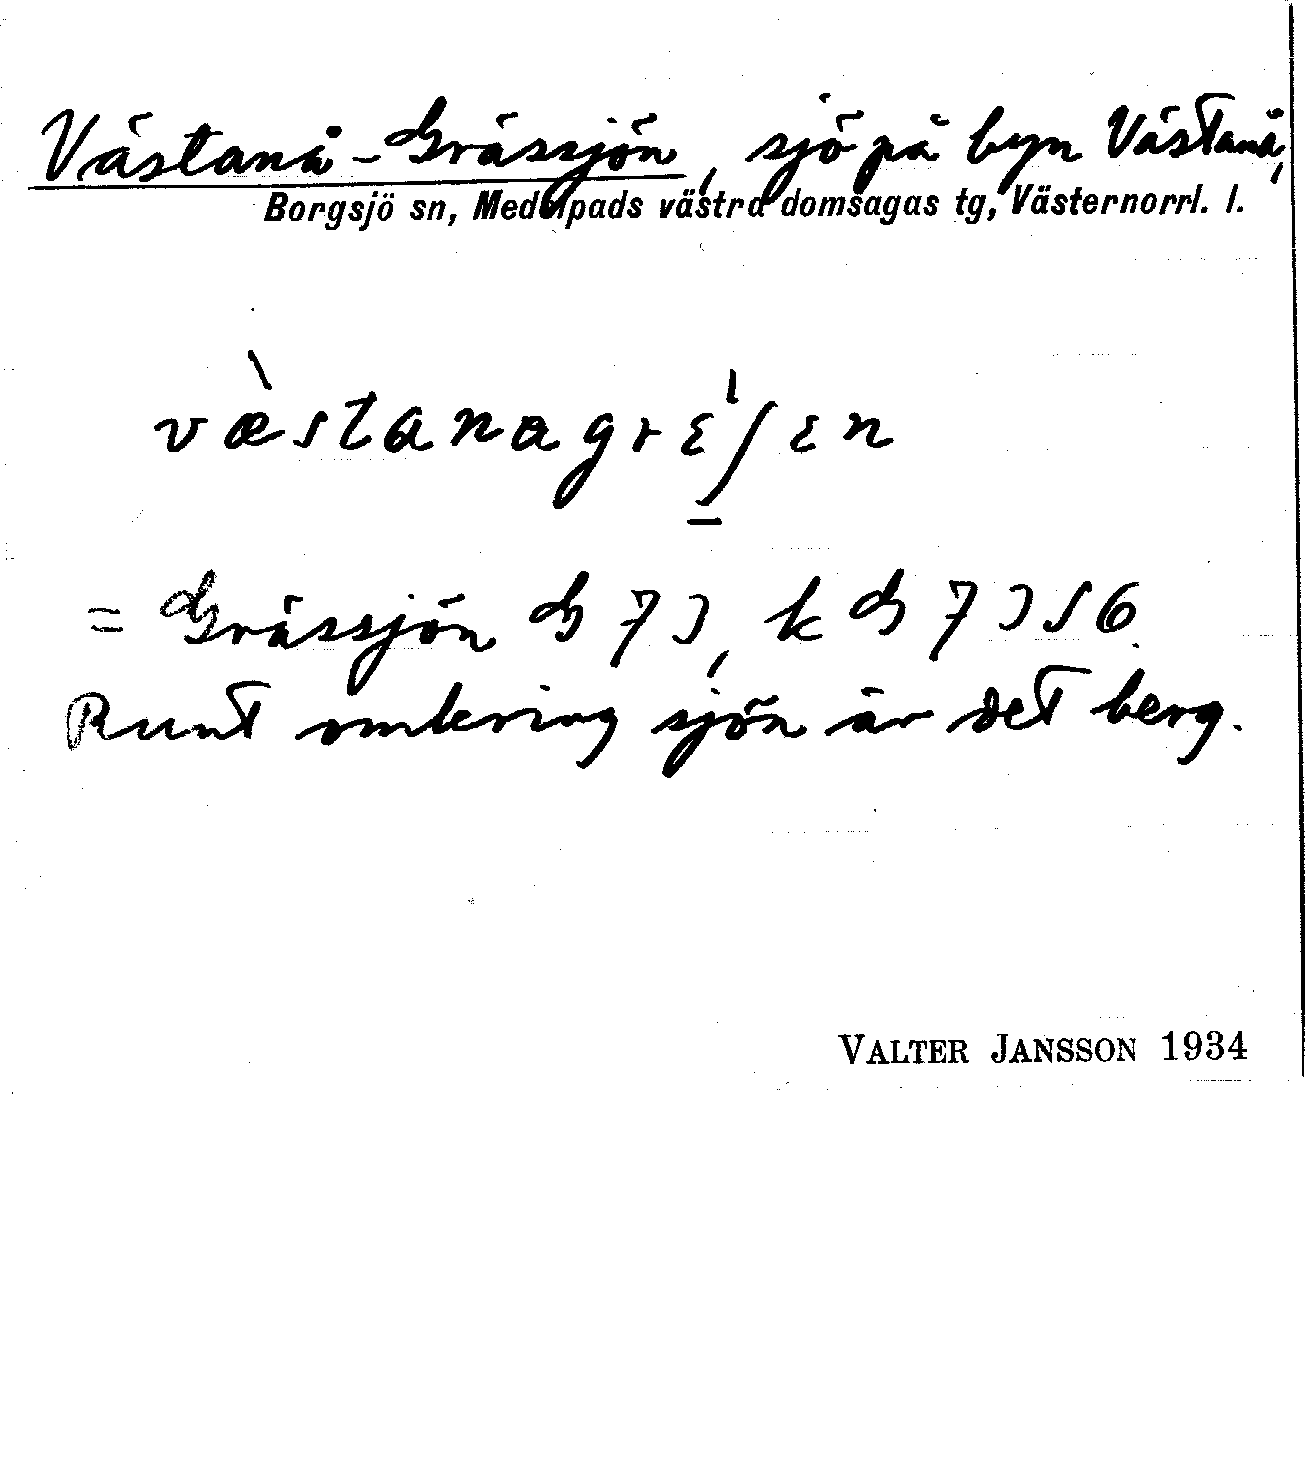 Västanå-Grässjön, sjö på byn Västanå,
Borgsjö sn, Medelpads västra domsagas tg, Västernorrl. l.
væ̀stanagrɛ́ʃɛn
= Grässjön G 73, k G 7356.
Runt omkring sjön är det berg.
VALTER JANSSON 1934